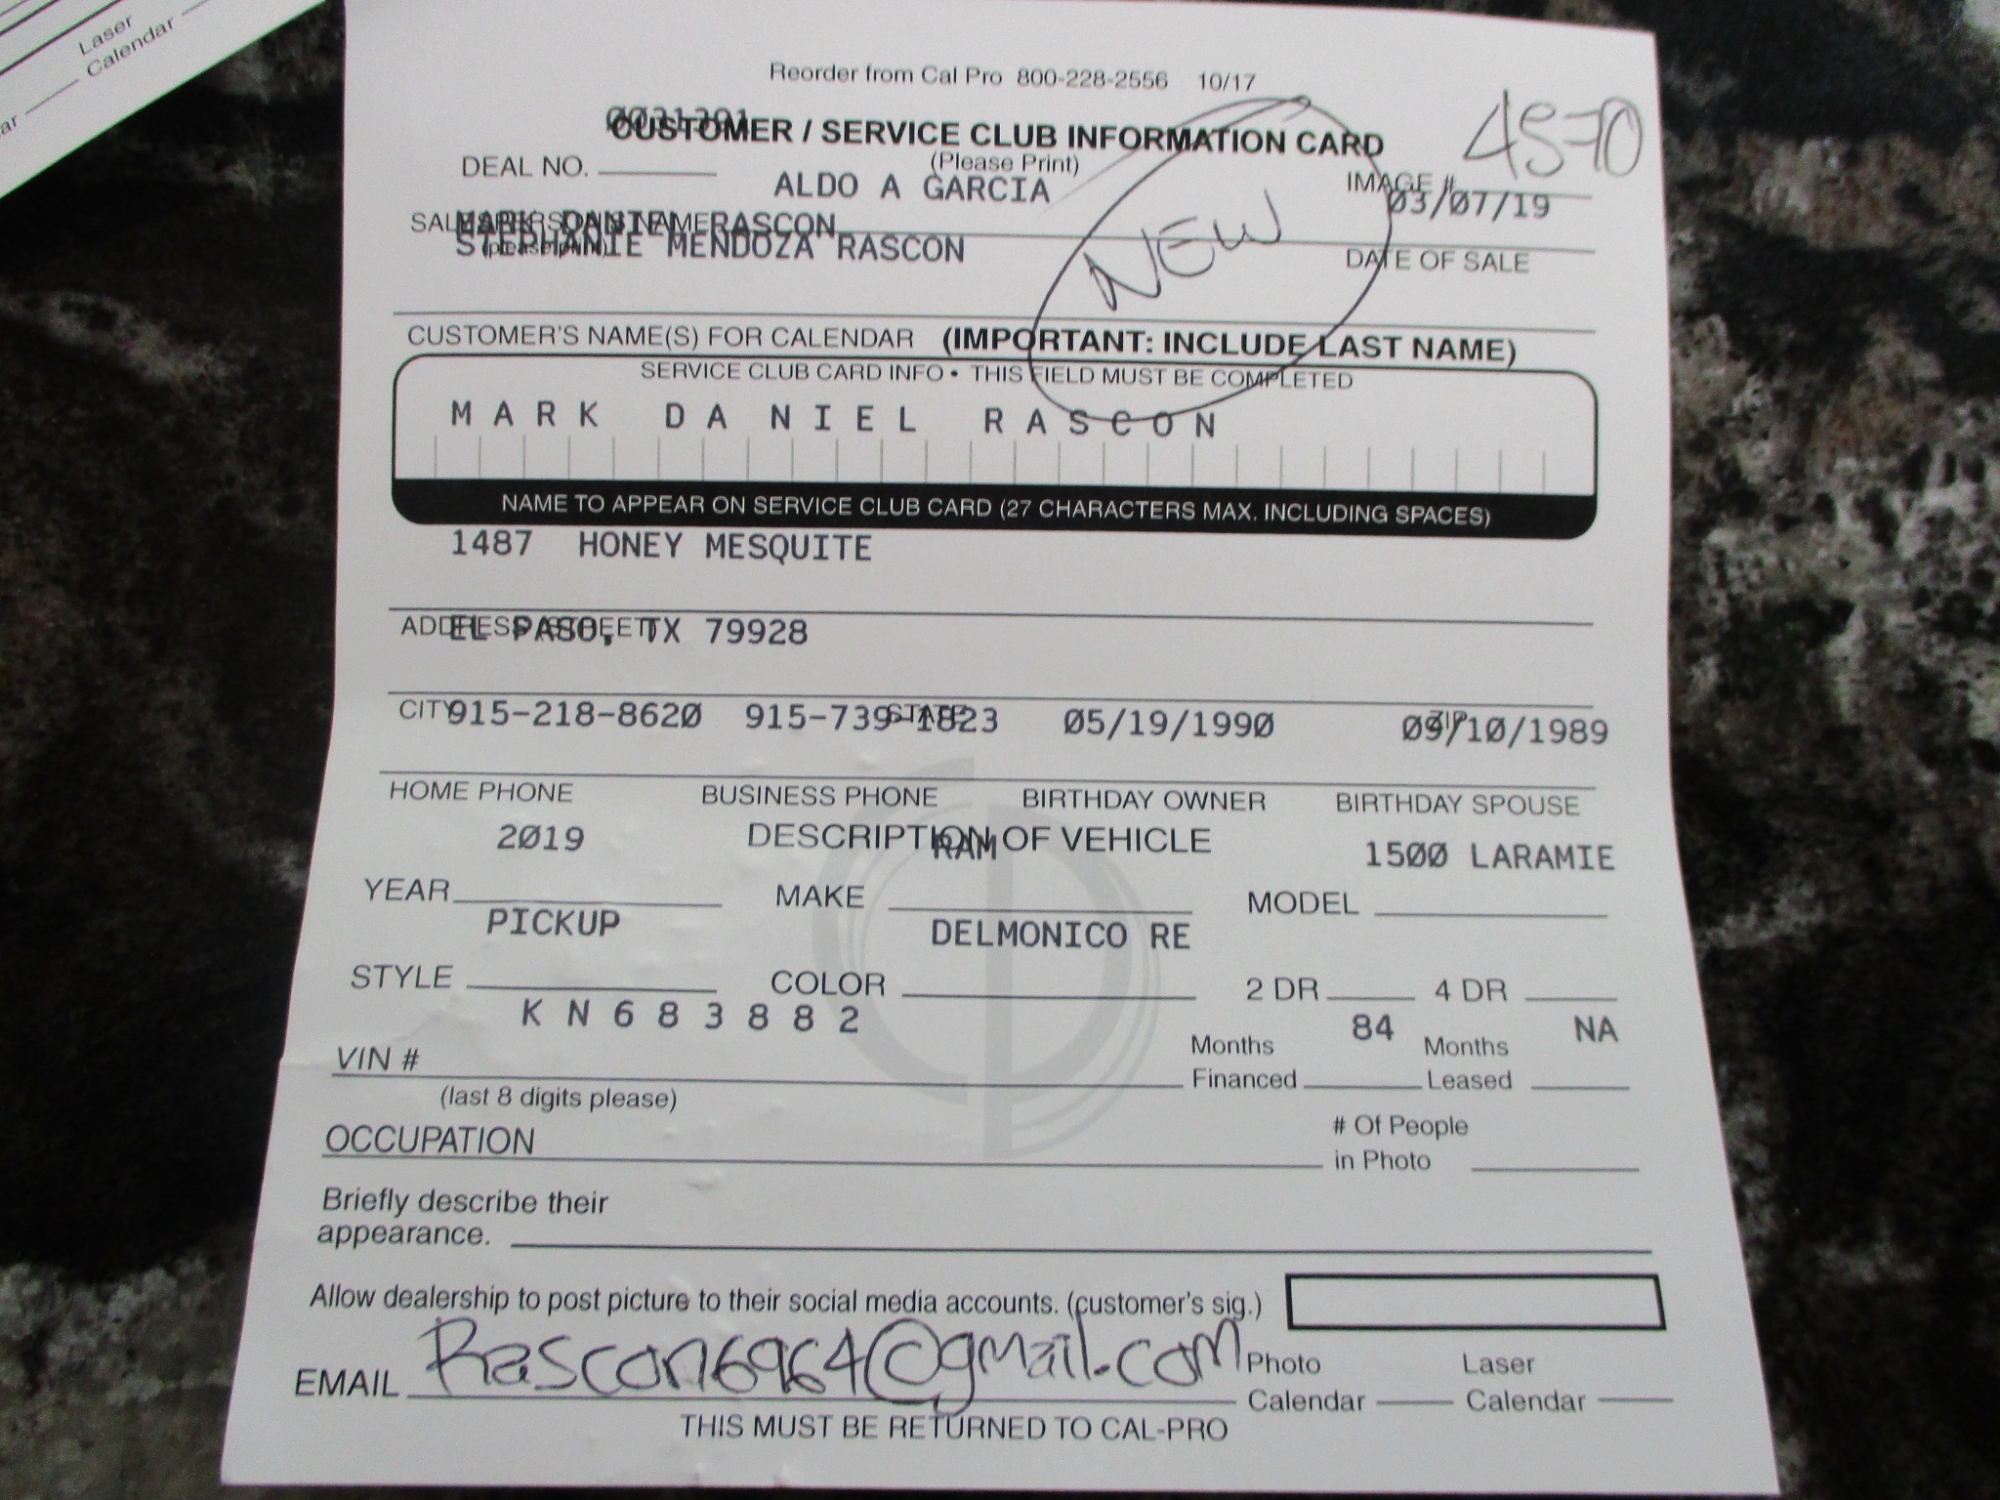 Laser
Calendar
ar
Reorder from Cal Pro 800-228-2556 10/17
CUSTOMER / SERVICE CLUB INFORMATION CARD
4570
(Please Print)
DEAL NO.
ALDO A GARCIA
IMAGE #
03/07/19
SALESPERSON'S NAME
MARK DANIEL RASCON
STEPHANIE MENDOZA RASCON
NEW
DATE OF SALE
CUSTOMER'S NAME(S) FOR CALENDAR (IMPORTANT: INCLUDE LAST NAME)
SERVICE CLUB CARD INFO • THIS FIELD MUST BE COMPLETED
MARK DANIEL RASCON
NAME TO APPEAR ON SERVICE CLUB CARD (27 CHARACTERS MAX. INCLUDING SPACES)
1487 HONEY MESQUITE
ADDRESS/STREET
EL PASO, TX 79928
CITY STATE ZIP
915-218-8620 915-739-1823 05/19/1990 09/10/1989
HOME PHONE BUSINESS PHONE BIRTHDAY OWNER BIRTHDAY SPOUSE
DESCRIPTION OF VEHICLE
2019 RAM 1500 LARAMIE
YEAR MAKE MODEL
PICKUP DELMONICO RE
STYLE COLOR 2 DR 4 DR
KN683882 84 NA
VIN # Months Financed Months Leased
(last 8 digits please)
OCCUPATION # Of People in Photo
Briefly describe their
appearance.
Allow dealership to post picture to their social media accounts. (customer's sig.)
EMAIL Rascon6964@gmail.com Photo Calendar Laser Calendar
THIS MUST BE RETURNED TO CAL-PRO